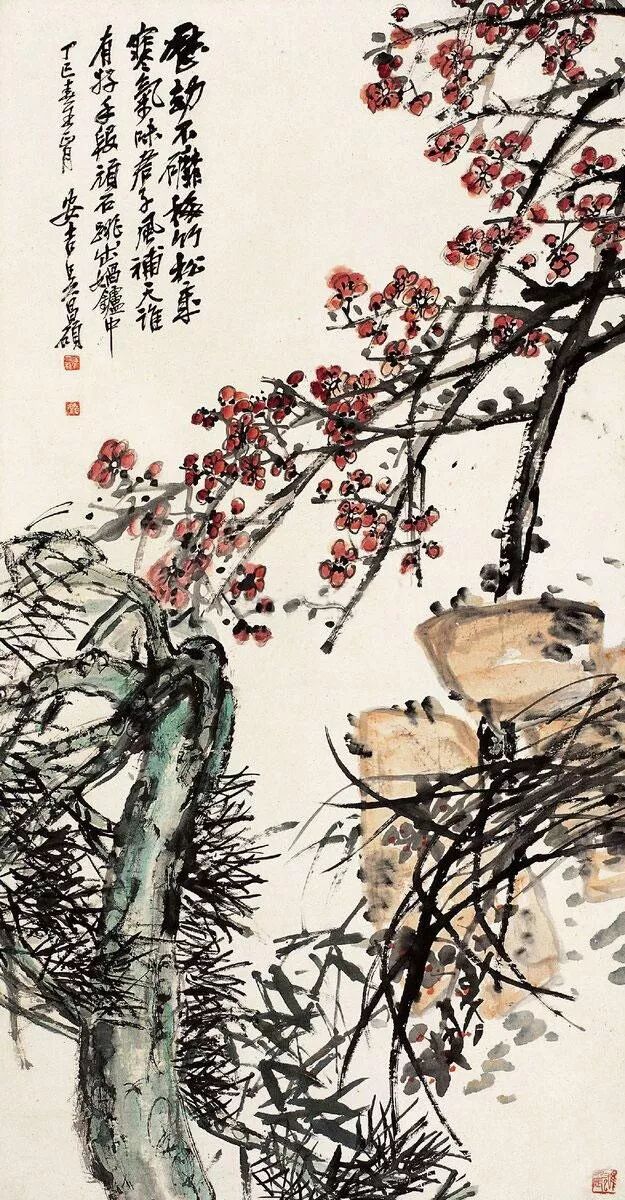 歷劫不梅竹松歲
寒氣味君子風補天誰
有好手段頑石跳出媧鑪中
丁巳春王正月 安吉吳昌碩